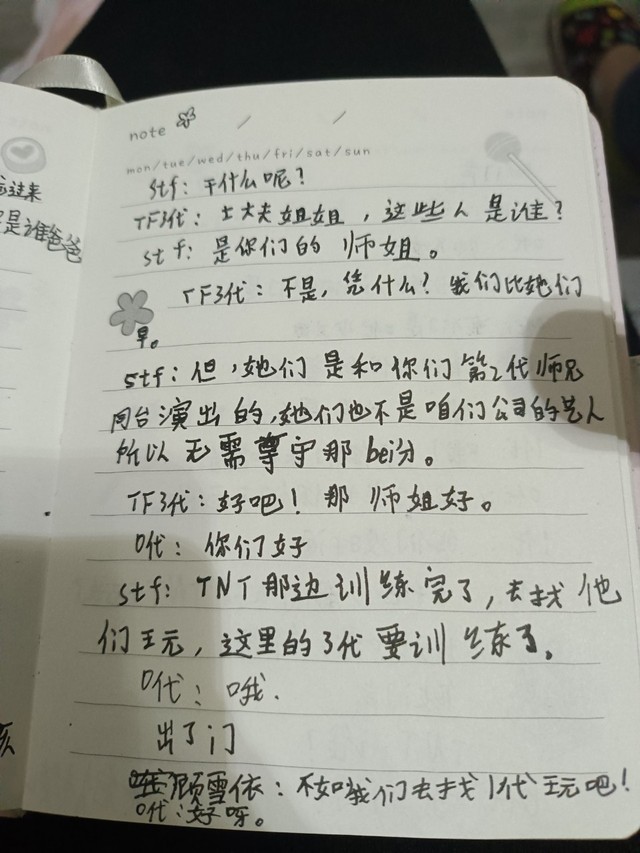 note / /
mon/tue/wed/thu/fri/sat/sun
stf：干什么呢？
TF3代：士大夫姐姐，这些人是谁？
stf：是你们的 师姐。
TF3代：不是，凭什么？我们比她们
早。
stf：但，她们是和你们第2代师兄
同台演出的，她们也不是咱们公司的艺人
所以无需遵守那bei分。
TF3代：好吧！那 师姐好。
0代：你们好
stf：TNT那边训练完了，去找他
们玩，这里的3代要训练了。
0代：哦.
出了门
顾雪依：不如我们去找1代玩吧！
0代：好呀。
过来
是谁爸爸